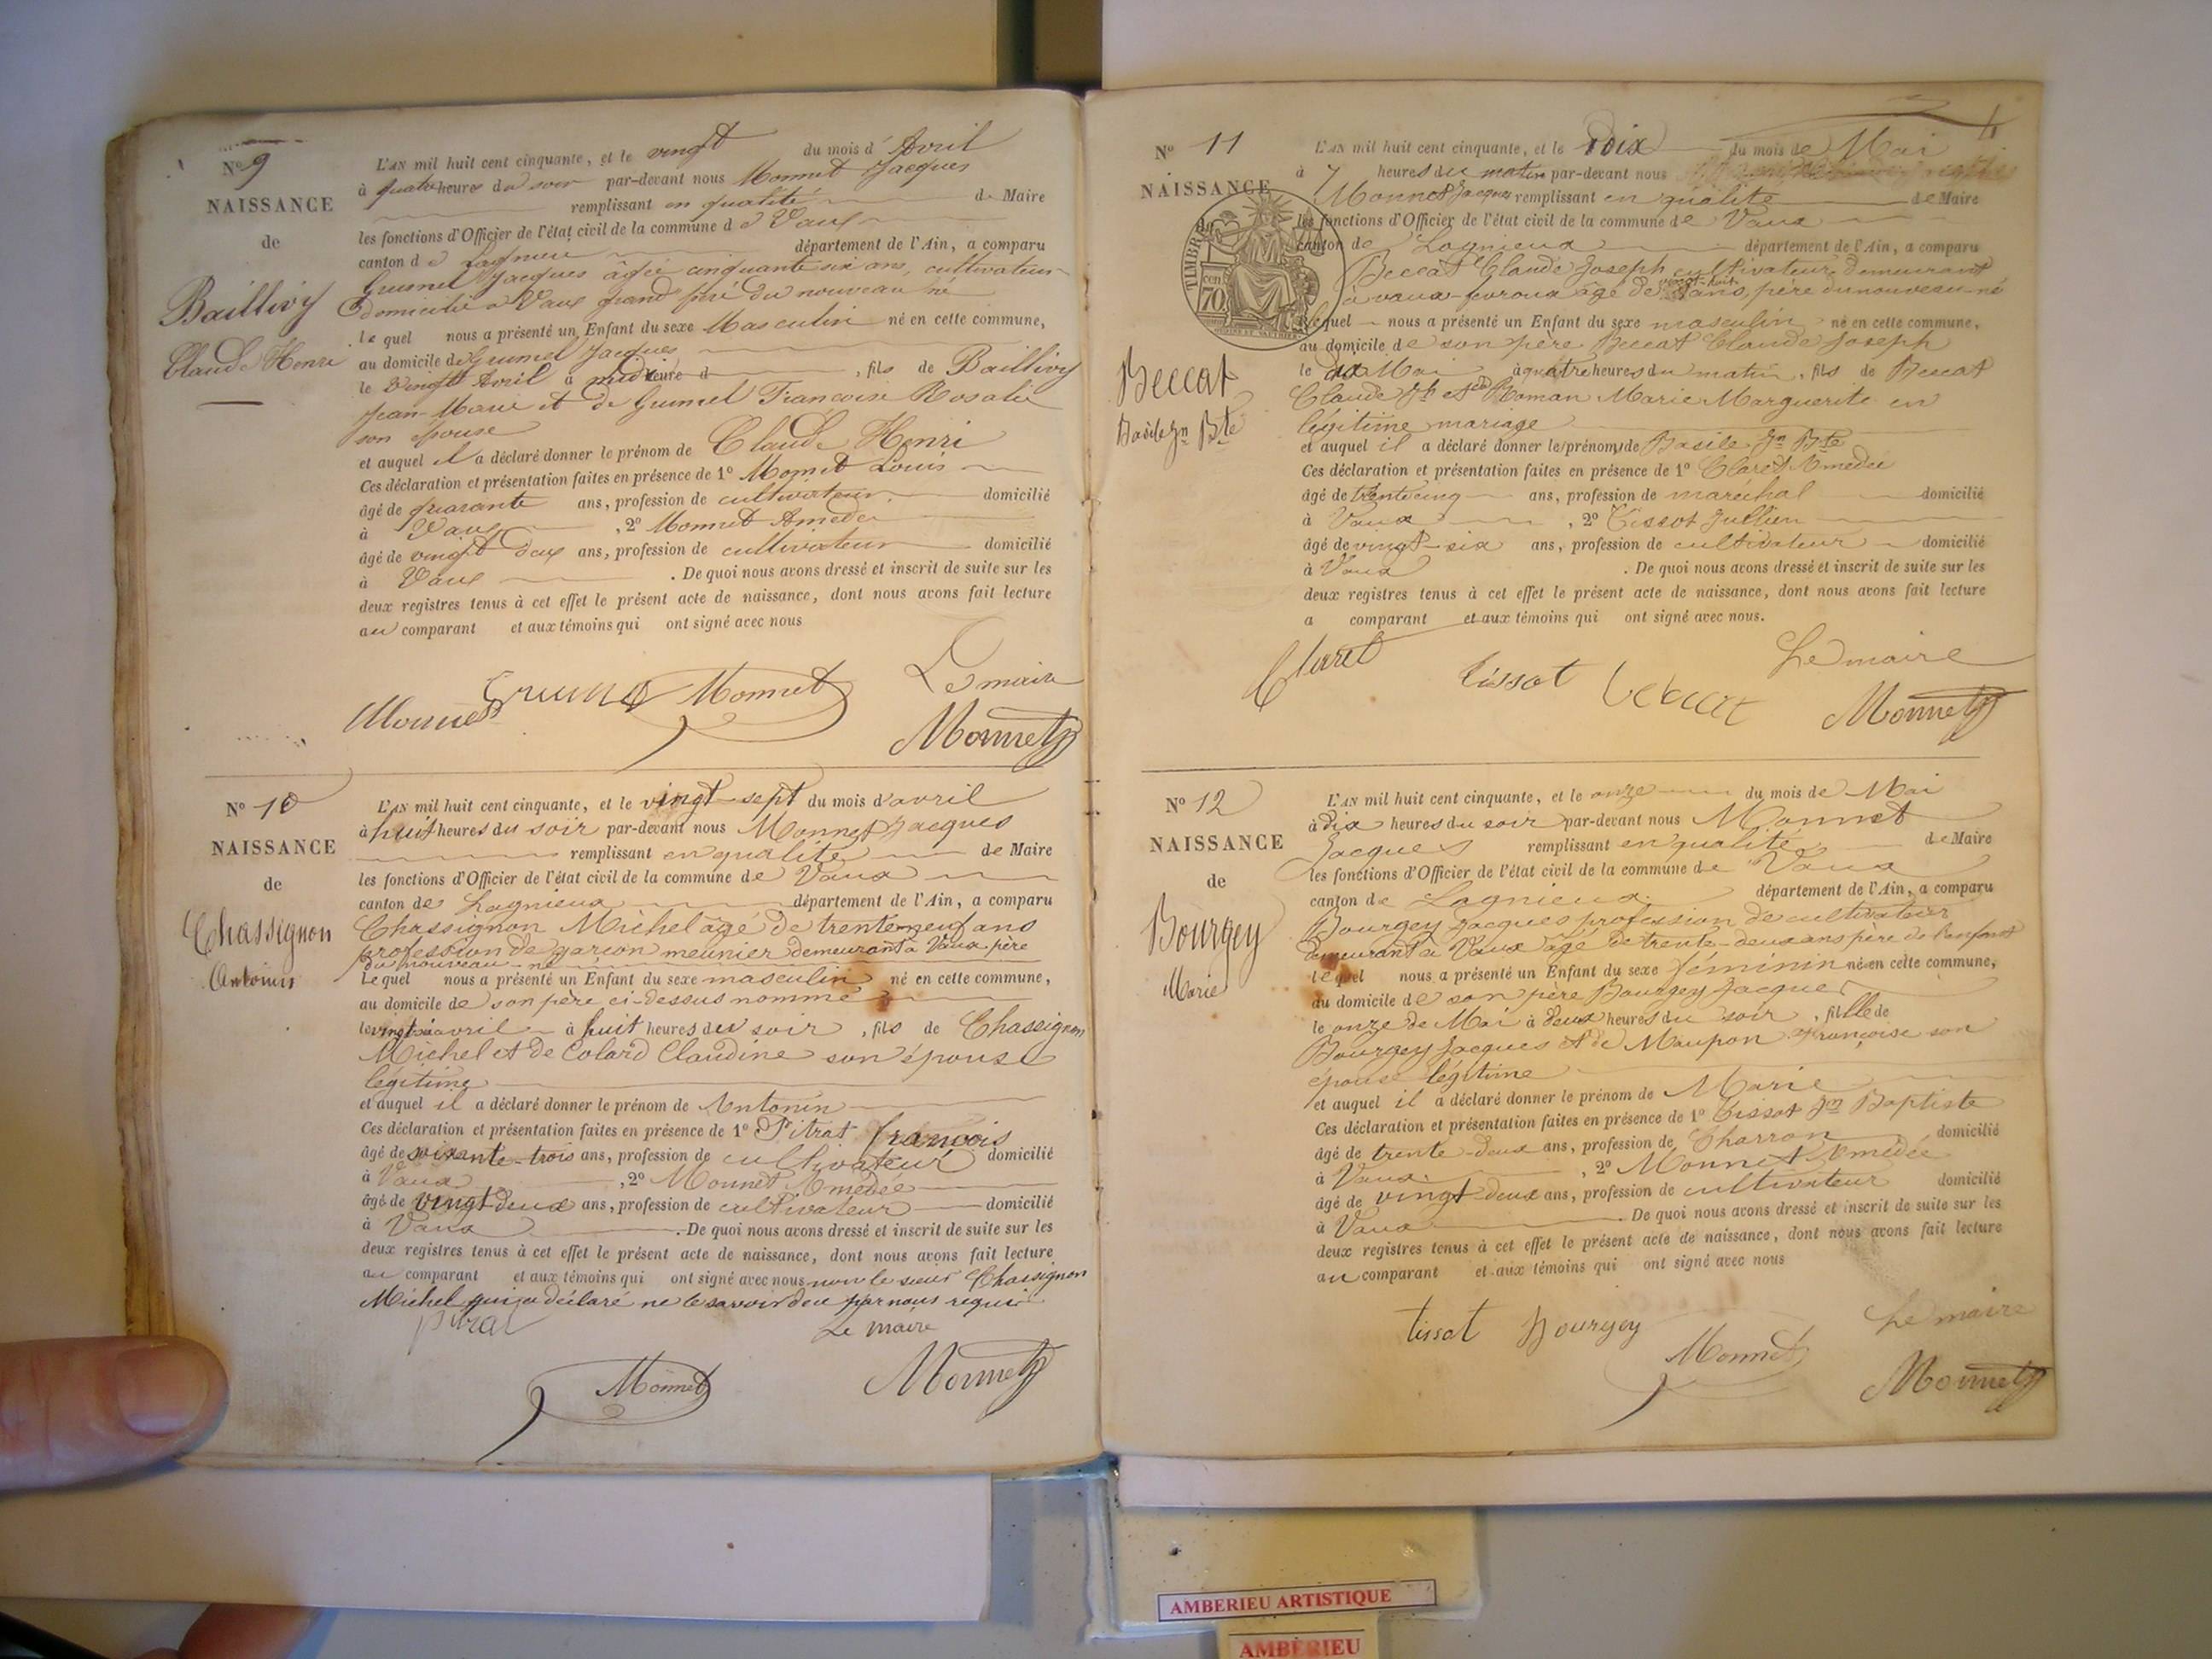 N° 9
NAISSANCE
de
Baillivy
Claude Henri
L'AN mil huit cent cinquante, et le vingt du mois d'Avril
à quatre heures du soir par-devant nous Monnet Jacques
remplissant en qualité de Maire
les fonctions d'Officier de l'état civil de la commune de Vaux
canton de Lagnieu département de l'Ain, a comparu
Grumel Jacques âgée cinquante six ans, cultivateur
domicilié a Vaux grand père du nouveau né
le quel nous a présenté un Enfant du sexe Masculin né en cette commune,
au domicile de Grumel Jacques
le vingt Avril à midi heure d , fils de Baillivy
Jean-Marie et de Grumel Francoise Rosalie
son épouse
et auquel il a déclaré donner le prénom de Claude Henri
Ces déclaration et présentation faites en présence de 1° Monnet Louis
âgé de quarante ans, profession de cultivateur domicilié
à Vaux , 2° Monnet Amédée
âgé de vingt deux ans, profession de cultivateur domicilié
à Vaux . De quoi nous avons dressé et inscrit de suite sur les
deux registres tenus à cet effet le présent acte de naissance, dont nous avons fait lecture
au comparant et aux témoins qui ont signé avec nous
Le maire
Monnet Grumel Monnet
Monnet
N° 10
NAISSANCE
de
Chassignon
Antonin
L'AN mil huit cent cinquante, et le vingt-sept du mois d'avril
à huit heures du soir par-devant nous Monnet Jacques
remplissant en qualité de Maire
les fonctions d'Officier de l'état civil de la commune de Vaux
canton de Lagnieux département de l'Ain, a comparu
Chassignon Michel âgé de trente neuf ans
profession de garcon meunier demeurant a Vaux père
du nouveau-né
Lequel nous a présenté un Enfant du sexe masculin né en cette commune,
au domicile de son père ci-dessus nommé
le vingt six avril à huit heures du soir , fils de Chassignon
Michel et de Colard Claudine son épouse
légitime
et auquel il a déclaré donner le prénom de Antonin
Ces déclaration et présentation faites en présence de 1° Pitrat francois
âgé de soixante-trois ans, profession de cultivateur domicilié
à Vaux , 2° Monnet Amédée
âgé de vingt deux ans, profession de cultivateur domicilié
à Vaux . De quoi nous avons dressé et inscrit de suite sur les
deux registres tenus à cet effet le présent acte de naissance, dont nous avons fait lecture
au comparant et aux témoins qui ont signé avec nous non le sieur Chassignon
Michel qui a déclaré ne le savoir de ce par nous requis
pitrat Le maire
Monnet Monnet
4
N° 11
NAISSANCE
de
TIMBRE
70 cen
Beccat
Basile Jn Bte
L'AN mil huit cent cinquante, et le dix du mois de Mai
à 7 heures du matin par-devant nous
Monnet Jacques remplissant en qualité de Maire
les fonctions d'Officier de l'état civil de la commune de Vaux
canton de Lagnieux département de l'Ain, a comparu
Beccat Claude Joseph cultivateur demeurant
à vaux-fevroux âgé de vingt-huit ans, père du nouveau-né
Lequel nous a présenté un Enfant du sexe masculin né en cette commune,
au domicile de son père Beccat Claude Joseph
le dix Mai à quatre heures du matin, fils de Beccat
Claude Jh et de Roman Marie Marguerite en
légitime mariage
et auquel il a déclaré donner le prénom de Basile Jn Bte
Ces déclaration et présentation faites en présence de 1° Claret Amédée
âgé de trente cinq ans, profession de maréchal domicilié
à Vaux , 2° Tissot Jullien
âgé de vingt-six ans, profession de cultivateur domicilié
à Vaux . De quoi nous avons dressé et inscrit de suite sur les
deux registres tenus à cet effet le présent acte de naissance, dont nous avons fait lecture
a comparant et aux témoins qui ont signé avec nous.
Claret Tissot beccat Le maire
Monnet
N° 12
NAISSANCE
de
Bourgey
Marie
L'AN mil huit cent cinquante, et le onze du mois de Mai
à dix heures du soir par-devant nous Monnet
Jacques remplissant en qualité de Maire
les fonctions d'Officier de l'état civil de la commune de Vaux
canton de Lagnieux département de l'Ain, a comparu
Bourgey Jacques profession de cultivateur
demeurant à Vaux âgé de trente-deux ans père de l'enfant
lequel nous a présenté un Enfant du sexe féminin né en cette commune,
au domicile de son père Bourgey Jacques
le onze de Mai à deux heures du soir , fille de
Bourgey Jacques et de Maupon Françoise son
épouse légitime
et auquel il a déclaré donner le prénom de Marie
Ces déclaration et présentation faites en présence de 1° Tissot Jn Baptiste
âgé de trente-deux ans, profession de Charron domicilié
à Vaux , 2° Monnet Amédée
âgé de vingt deux ans, profession de cultivateur domicilié
à Vaux . De quoi nous avons dressé et inscrit de suite sur les
deux registres tenus à cet effet le présent acte de naissance, dont nous avons fait lecture
au comparant et aux témoins qui ont signé avec nous
tissot Bourgey Le maire
Monnet Monnet
AMBERIEU ARTISTIQUE
AMBÉRIEU